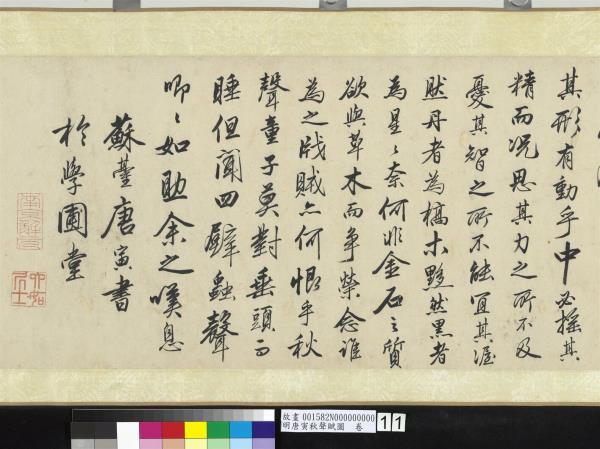 其形有動乎中必搖其
精而況思其力之所不及
憂其智之所不能宜其渥
然丹者為槁木黟然黑者
為星々奈何非金石之質
欲與草木而爭榮念誰
為之戕賊亦何恨乎秋
聲童子莫對垂頭而
睡但聞四壁蟲聲
唧々如助余之嘆息
蘇臺唐寅書
於學圃堂
南京解元
六如居士
故畫 001582N000000000
明唐寅秋聲賦圖 卷
11